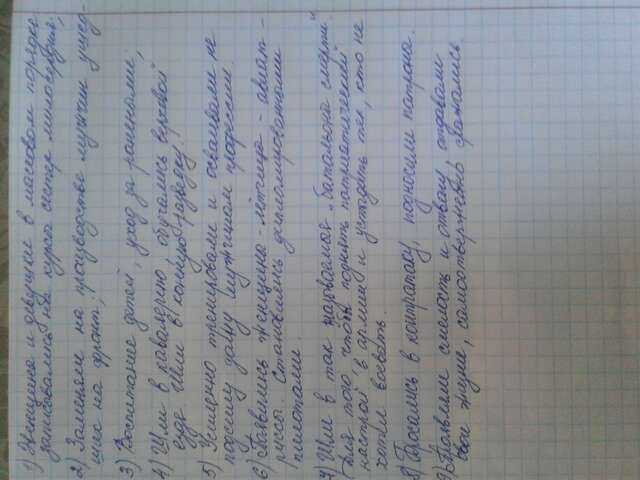 1) Женщины и девушки в массовом порядке
записывались на курсы сестер милосердия;
2) Заменяли на производстве мужчин ушед-
ших на фронт;
3) Воспитание детей, уход за ранеными,
4) Шли в кавалерию, обучались верховой
езде. Шли в конную разведку.
5) Усиленно тренировали и осваивали не
подсилу даже мужчинам профессии.
6) Появились женщины-лётчицы - авиат-
риссы. Становились дипломированными
пилотами.
7) Шли в так называемые "батальоны смерти"
для того, чтобы поднять патриатический
настрой в армии и устыдить тех, кто не
хотел воевать.
8) Бросались в контратаку, подносили патроны.
9) Проявляли смелость и отвагу, отдавали
свои жизни, самоотверженно сражались.